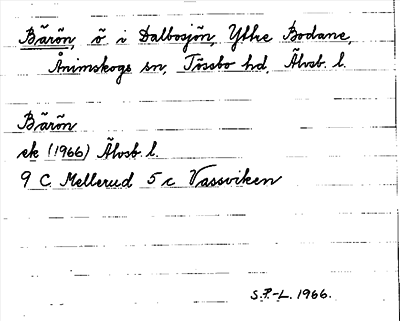 Bärön, ö i Dalbosjön, Yttre Bodane,
Ånimskogs sn, Tössbo hd, Älvsb. l.
Bärön
ek (1966) Älvsb. l.
9 C Mellerud 5 c Vassviken
S.P.-L. 1966.